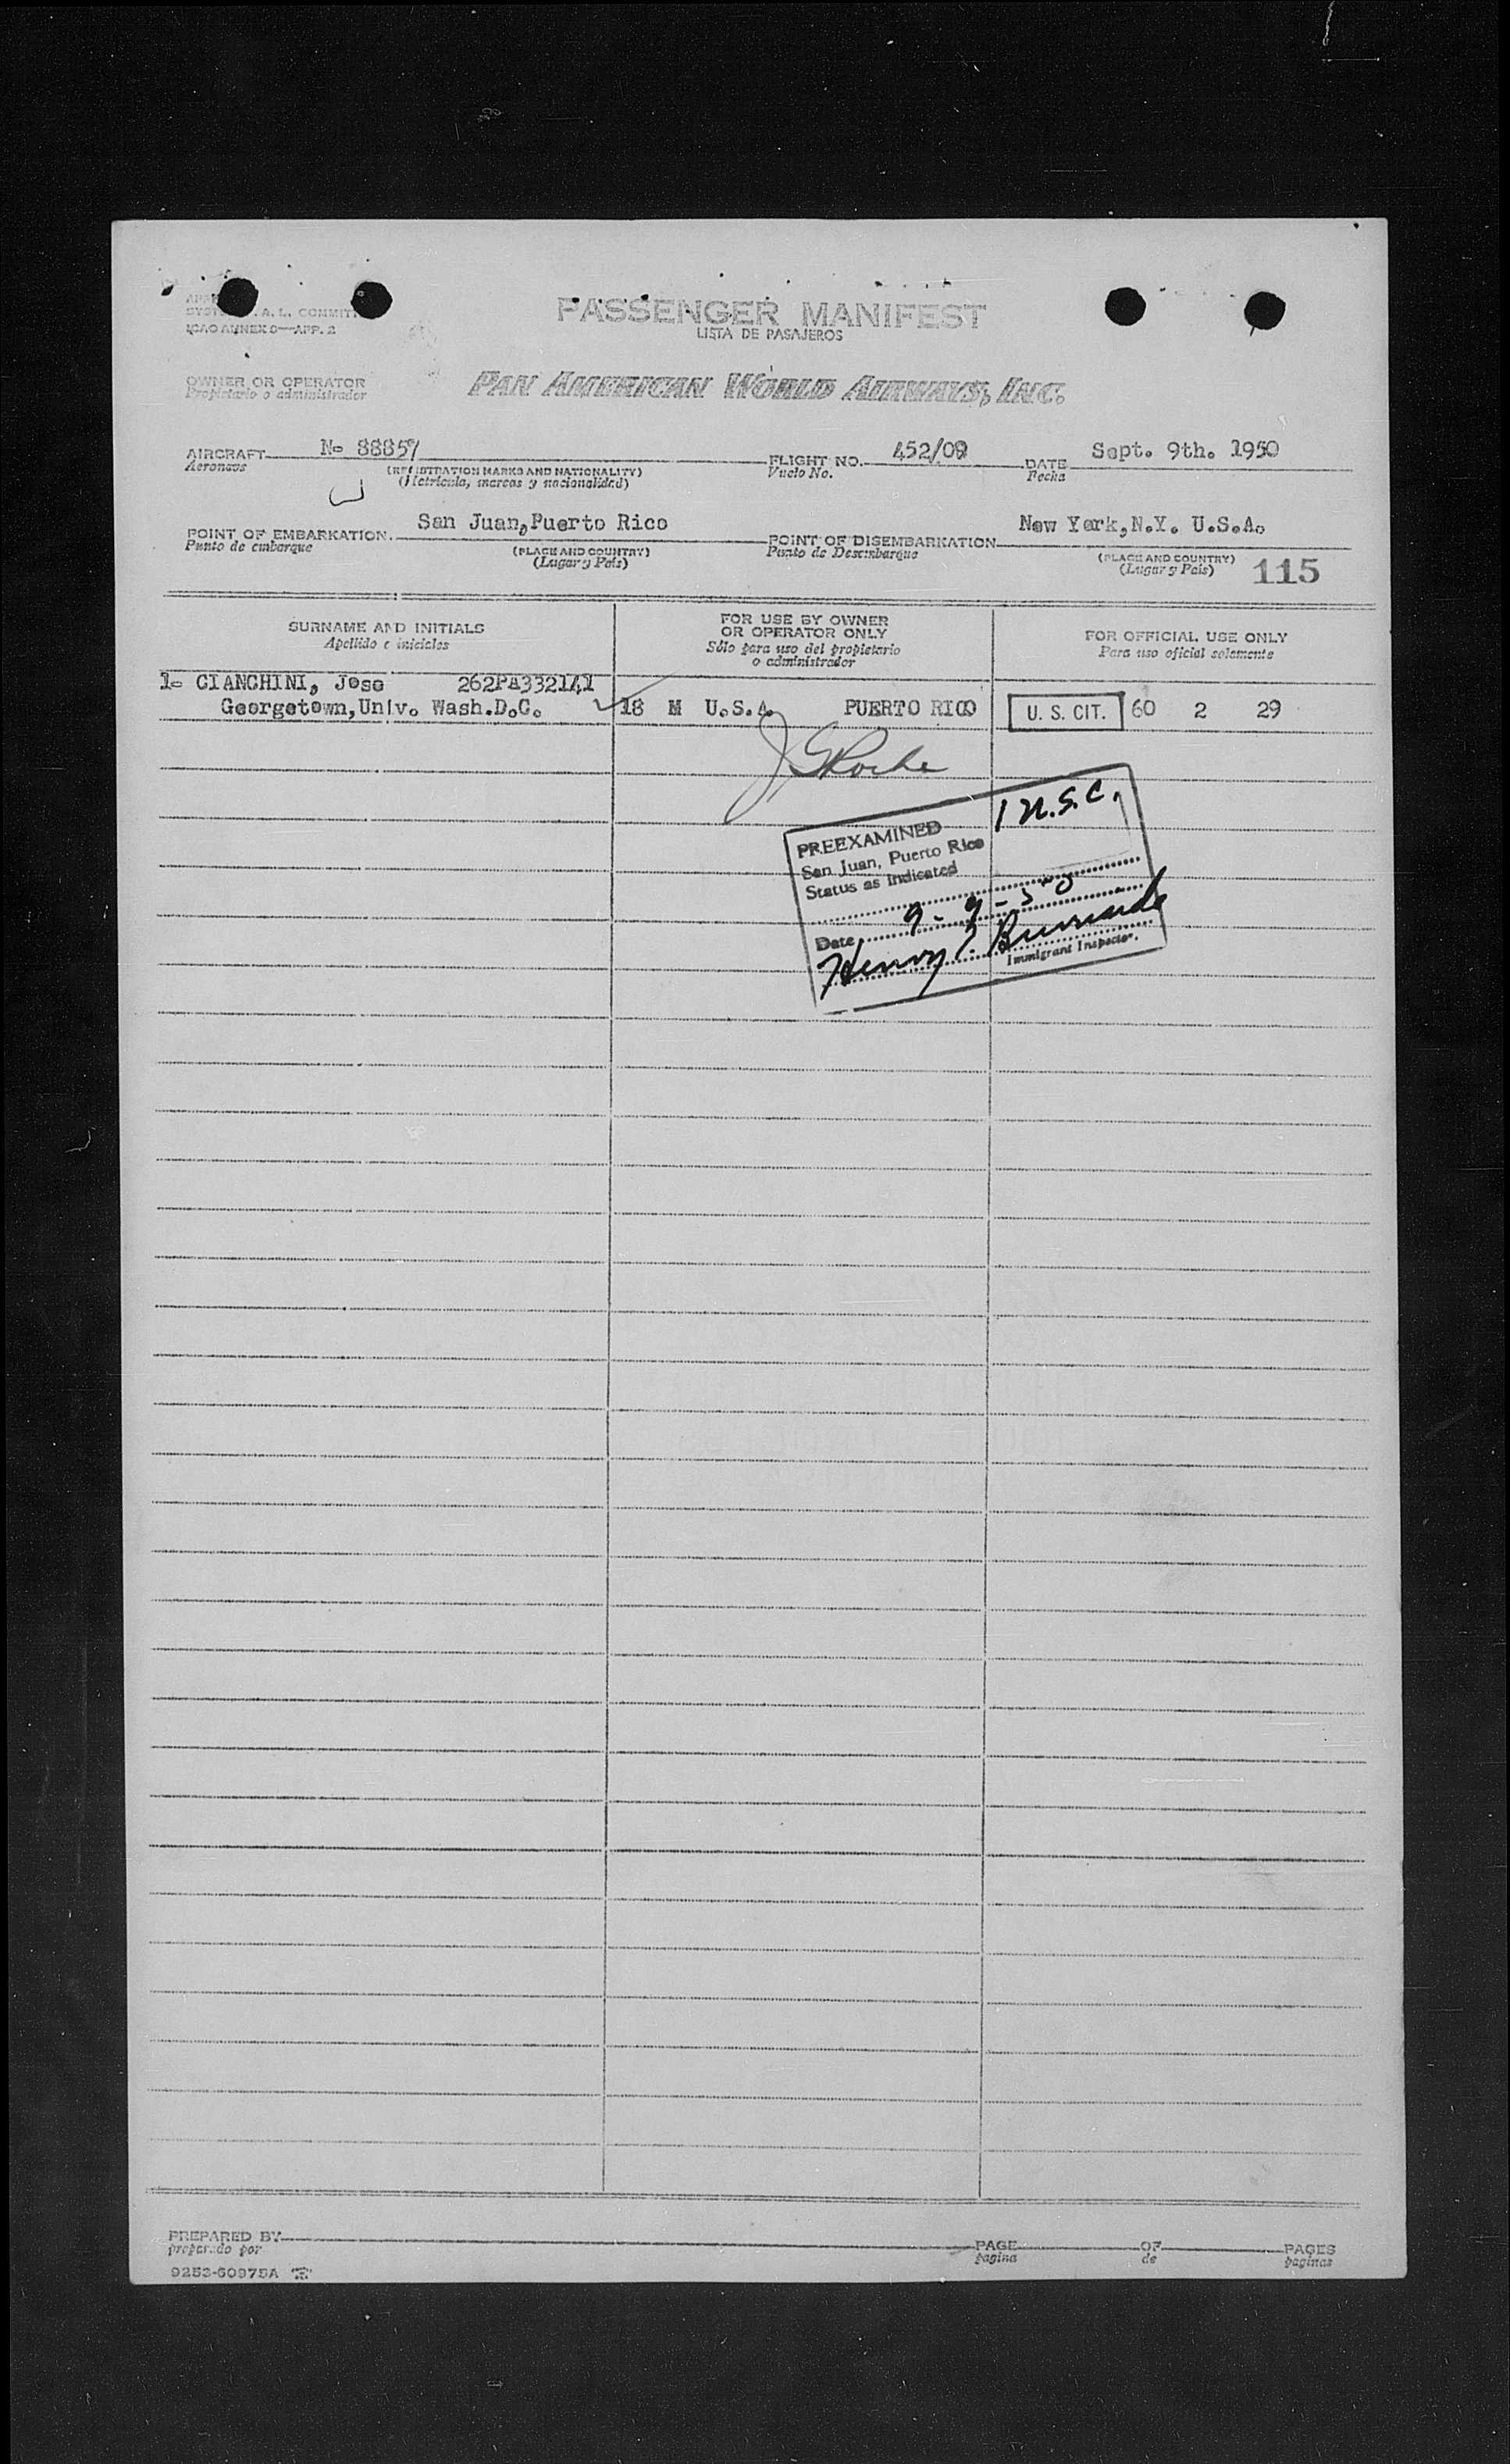 PASSENGER MANIFEST
LISTA DE PASAJEROS
SYST A. L. COMMITT
ICAO ANNEX 9—APP. 2
OWNER OR OPERATOR
Propietario o administrador
PAN AMERICAN WORLD AIRWAYS, INC.
AIRCRAFT N- 88857 FLIGHT NO. 452/09 DATE Sept. 9th. 1950
Aeronave (REGISTRATION MARKS AND NATIONALITY) Vuelo No. Fecha
(Matricula, marcas y nacionalidad)
POINT OF EMBARKATION San Juan,Puerto Rico POINT OF DISEMBARKATION New York,N.Y. U.S.A.
Punto de embarque (PLACE AND COUNTRY) Punto de Desembarque (PLACE AND COUNTRY)
(Lugar y País) (Lugar y País) 115
SURNAME AND INITIALS FOR USE BY OWNER OR OPERATOR ONLY FOR OFFICIAL USE ONLY
Apellido e iniciales Sólo para uso del propietario o administrador Para uso oficial solamente
1- CIANCHINI, Jose 262PA332141
Georgetown,Univ. Wash.D.C. 18 M U.S.A. PUERTO RICO U. S. CIT. 60 2 29
J G Roche
PREEXAMINED 1 U.S.C.
San Juan, Puerto Rico
Status as Indicated
Date 9-9-50
Henry
Immigrant Inspector.
PREPARED BY PAGE OF PAGES
preparado por página de paginas
9253-60975A